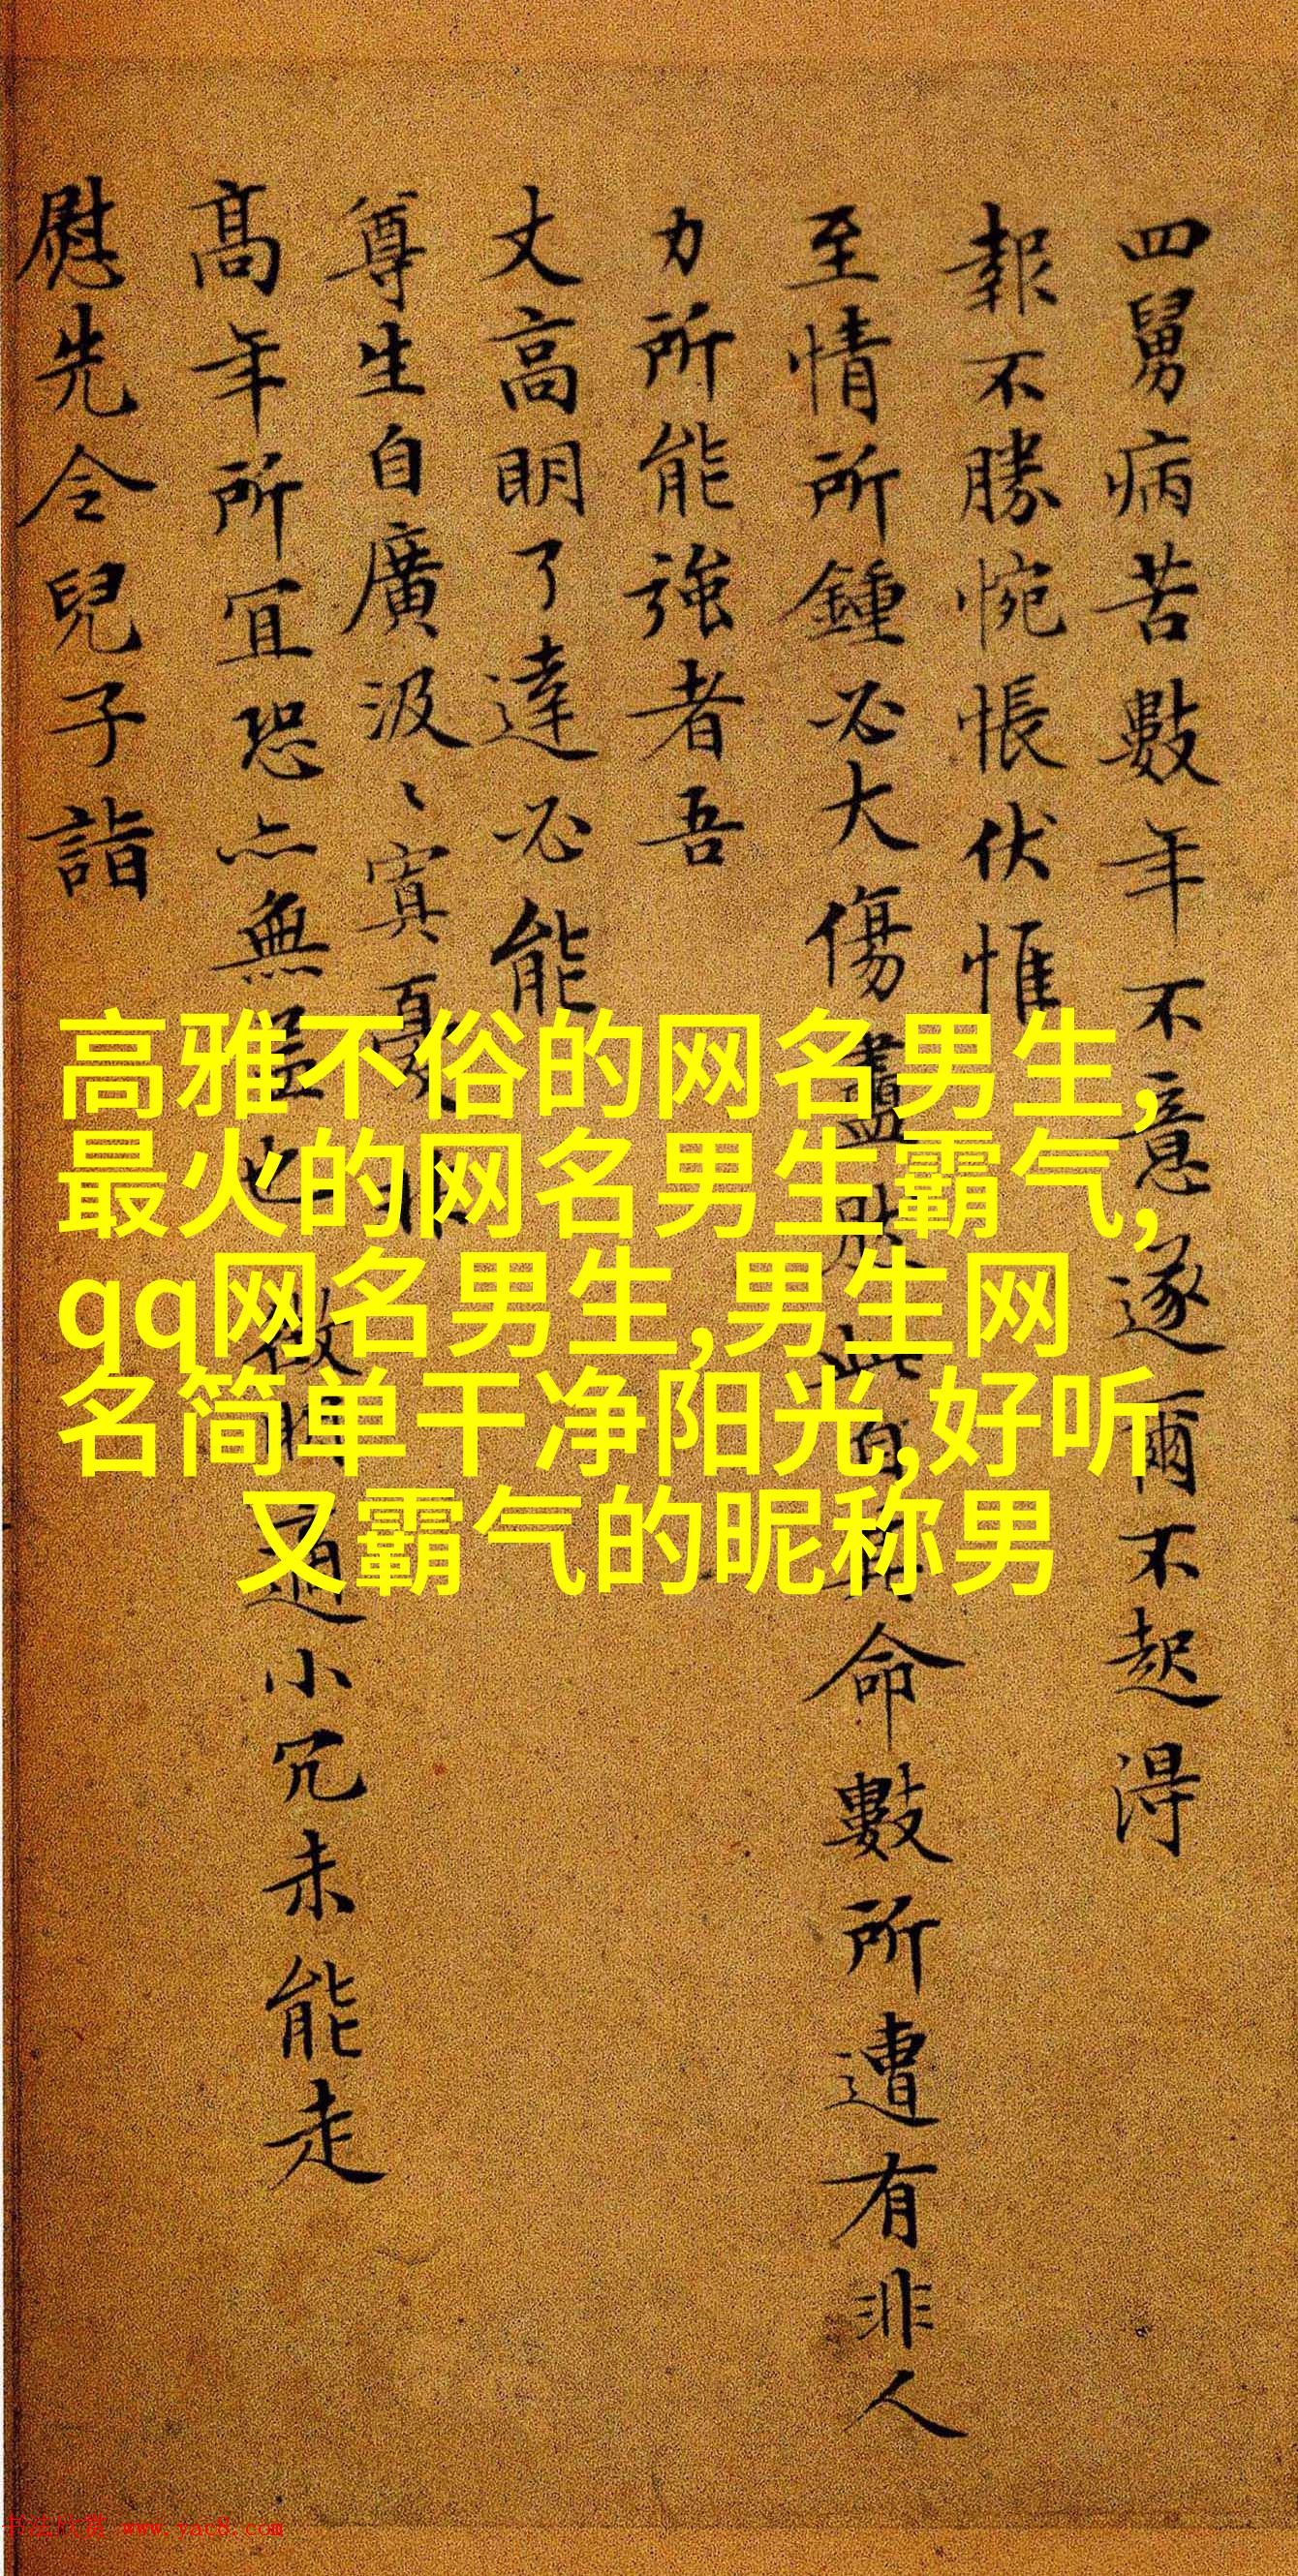 四舅病苦數年不意遂爾不起得
報不勝惋悵伏惟
至情所鍾必大傷盡此命數所遭有非人
力所能強者吾
丈高明了達必能
尊生自廣汲〻寘憂
高年所宜恐亦無益也微明適小冗未能走
慰先令兒子詣
高雅不俗的网名男生,
最火的网名男生霸气,
qq网名男生,男生网
名简单干净阳光,好听
又霸气的昵称男
书法欣赏 www.yac8.com